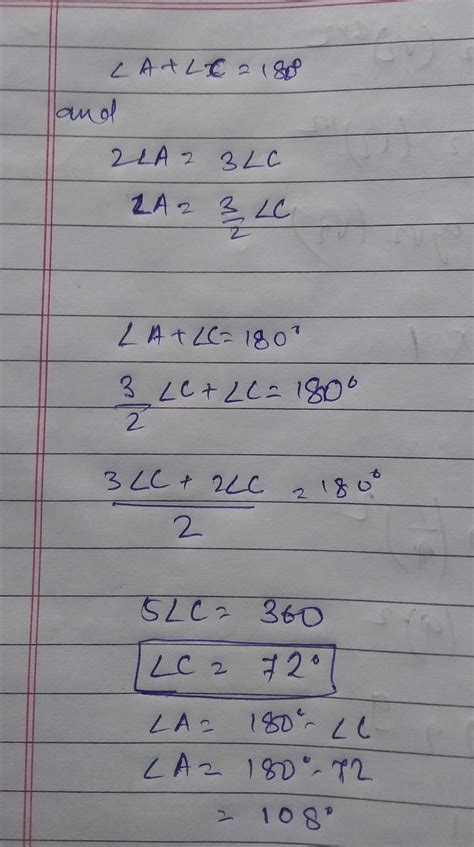 ∠A+∠C = 180°
and
2∠A = 3∠C
∠A = 3/2 ∠C
∠A+∠C= 180°
3/2 ∠C+ ∠C= 180°
(3∠C + 2∠C)/2 = 180°
5∠C= 360
∠C = 72°
∠A= 180°- ∠C
∠A= 180°-72
= 108°